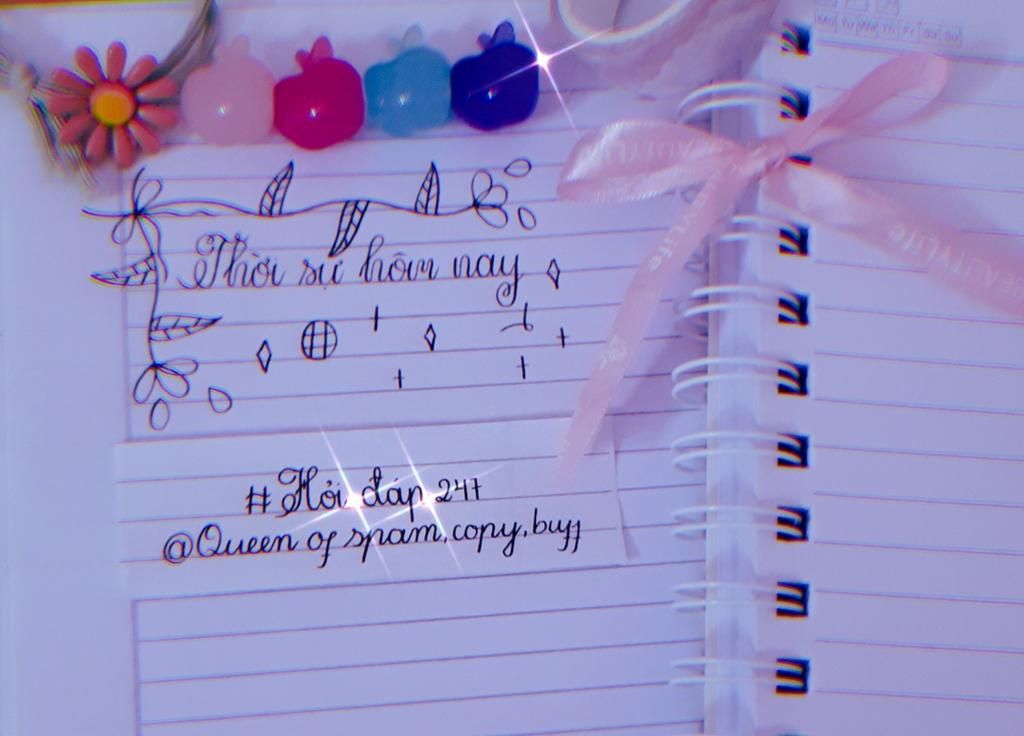 Mo Tu We Th Fr Sa Su
BEAUTYLife
BEAUTYLife
Thời sự hôm nay
# Hỏi đáp 247
@Queen of spam, copy, buff